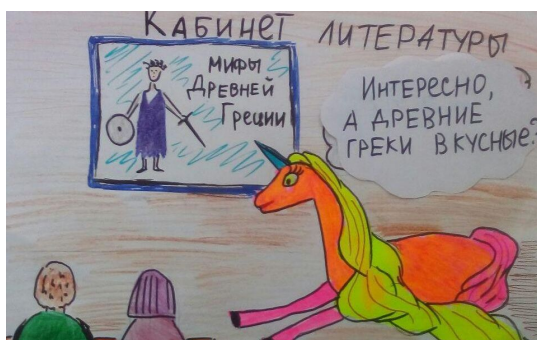 КАБИНЕТ ЛИТЕРАТУРЫ
МИФЫ
ДРЕВНЕЙ
ГРЕЦИИ
ИНТЕРЕСНО,
А ДРЕВНИЕ
ГРЕКИ ВКУСНЫЕ?